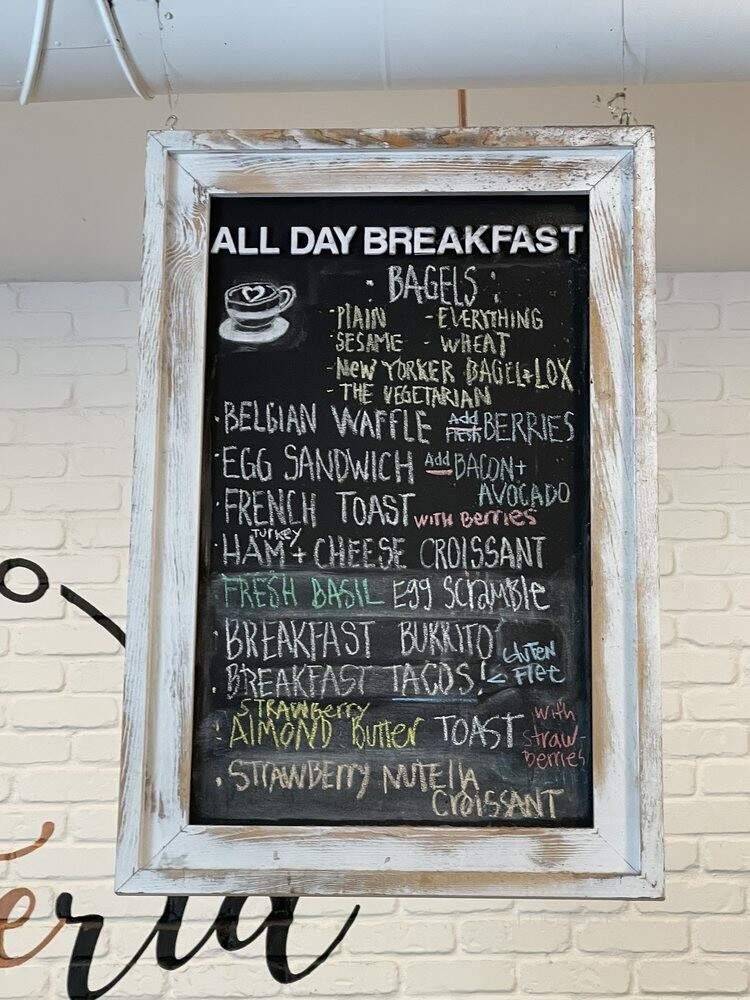 ALL DAY BREAKFAST
· BAGELS :
- PLAIN - EVERYTHING
SESAME - WHEAT
- NEW YORKER BAGEL + LOX
- THE VEGETARIAN
· BELGIAN WAFFLE Add Fresh BERRIES
· EGG SANDWICH Add BACON +
AVOCADO
· FRENCH TOAST WITH Berries
TURKEY
· HAM + CHEESE CROISSANT
FRESH BASIL Egg Scramble
· BREAKFAST BURRITO
· BREAKFAST TACOS! < GLUTEN Free
STRAWBERRY
· ALMOND Butter TOAST with straw-berries
· STRAWBERRY NUTELLA
CROISSANT
eria